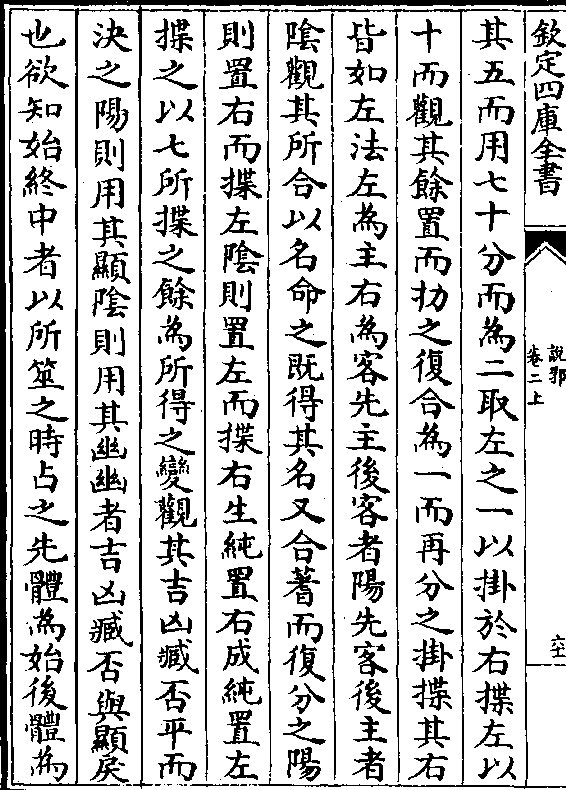 欽定四庫全書
說郛
卷二上
六十一
其五而用七十分而為二取左之一以掛於右揲左以
十而觀其餘置而扐之復合為一而再分之掛揲其右
皆如左法左為主右為客先主後客者陽先客後主者
陰觀其所合以名命之既得其名又合蓍而復分之陽
則置右而揲左陰則置左而揲右生純置右成純置左
揲之以七所揲之餘為所得之變觀其吉凶臧否平而
決之陽則用其顯陰則用其幽幽者吉凶臧否與顯戾
也欲知始終中者以所筮之時占之先體為始後體為